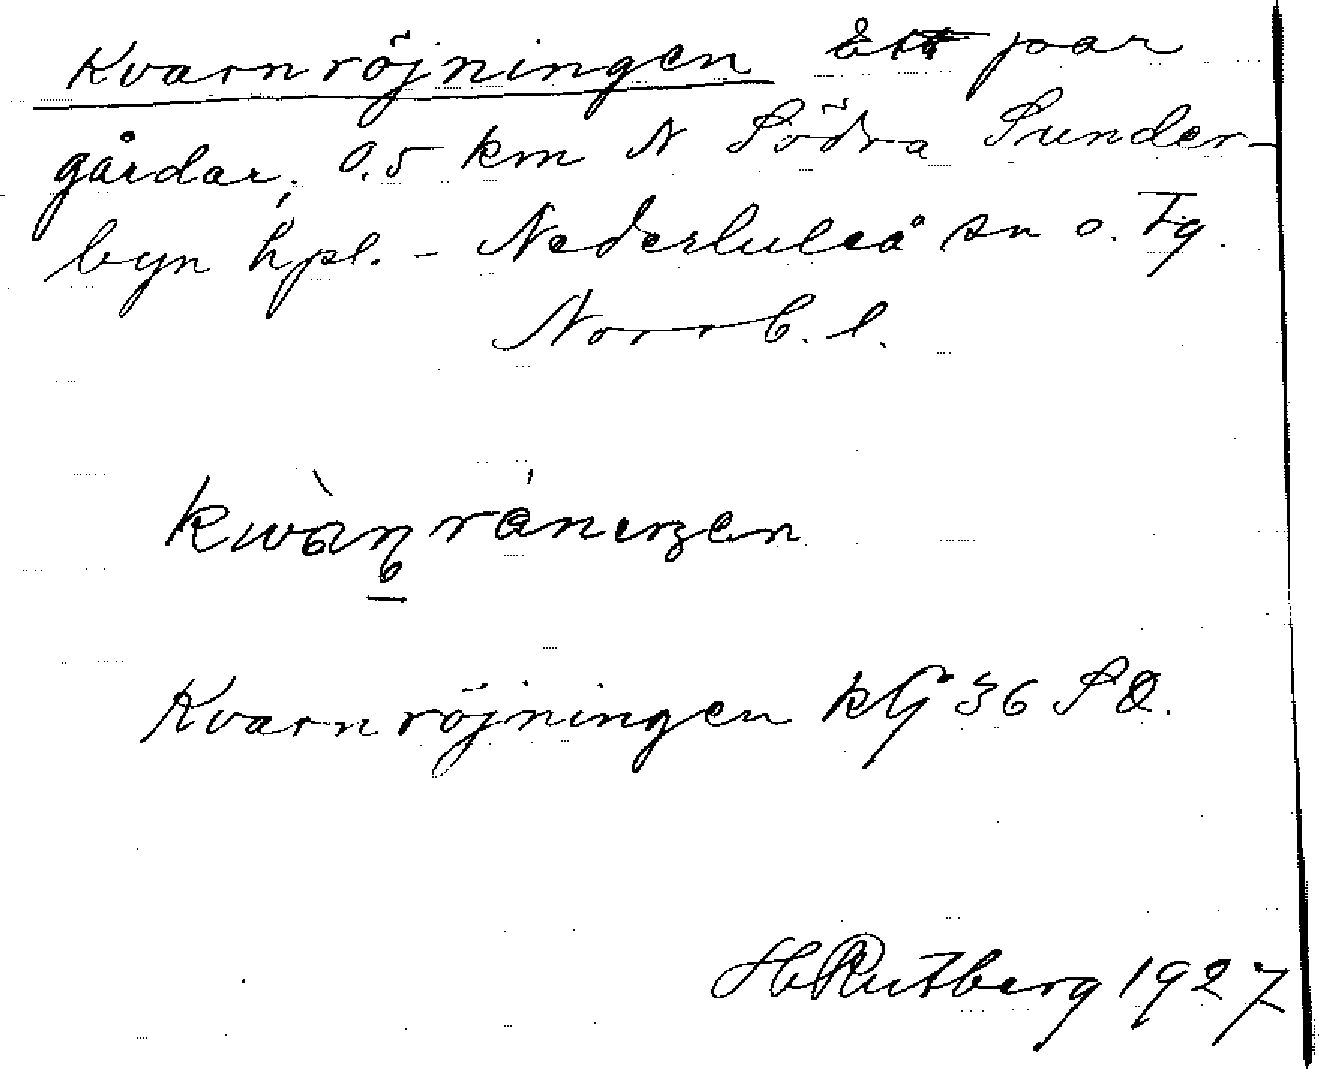 Kvarnröjningen Ett par
gårdar, 0,5 km N Södra Sunder-
byn hpl. - Nederluleå sn o. Tg.
Norrb. l.
Kvarnröjningen kG 36 SO.
H Rutberg 1927